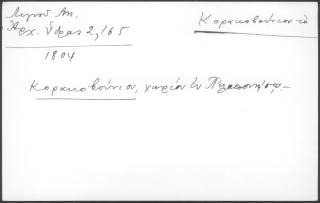 Λιγνοῦ Ἀν.
Ἀρχ. Ὕδρας 2, 165
1804
Κορακοβούνιον τὸ
Κορακοβούνιον, χωρίον ἐν Πελοποννήσῳ.-